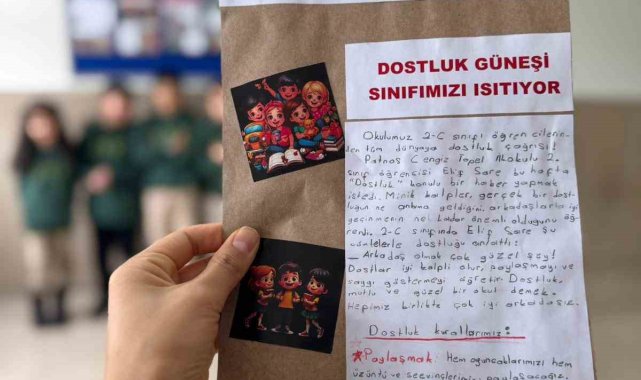 DOSTLUK GÜNEŞİ
SINIFIMIZI ISITIYOR
Okulumuz 2-C sınıfı öğrencilerin-
den tüm dünyaya dostluk çağrısı!
Patnos Cengiz Topel İlkokulu 2.
sınıf öğrencisi Elif Sare bu hafta
"Dostluk" konulu bir haber yapmak
istedi. Minik kalpler, gerçek bir dost-
luğun ne anlama geldiğini, arkadaşlarla iyi
geçinmenin ne kadar önemli olduğunu öğ-
rendi. 2-C sınıfından Elif Sare şu
cümlelerle dostluğu anlattı:
— Arkadaş olmak çok güzel şey!
Dostlar iyi kalpli olur, paylaşmayı ve
saygı göstermeyi öğretir. Dostluk,
mutlu ve güzel bir okul demek.
Hepimiz birlikte çok iyi arkadaşız.
Dostluk kurallarımız:
* Paylaşmak: Hem oyuncaklarımızı hem
üzüntü ve sevinçlerimizi paylaşacağız.